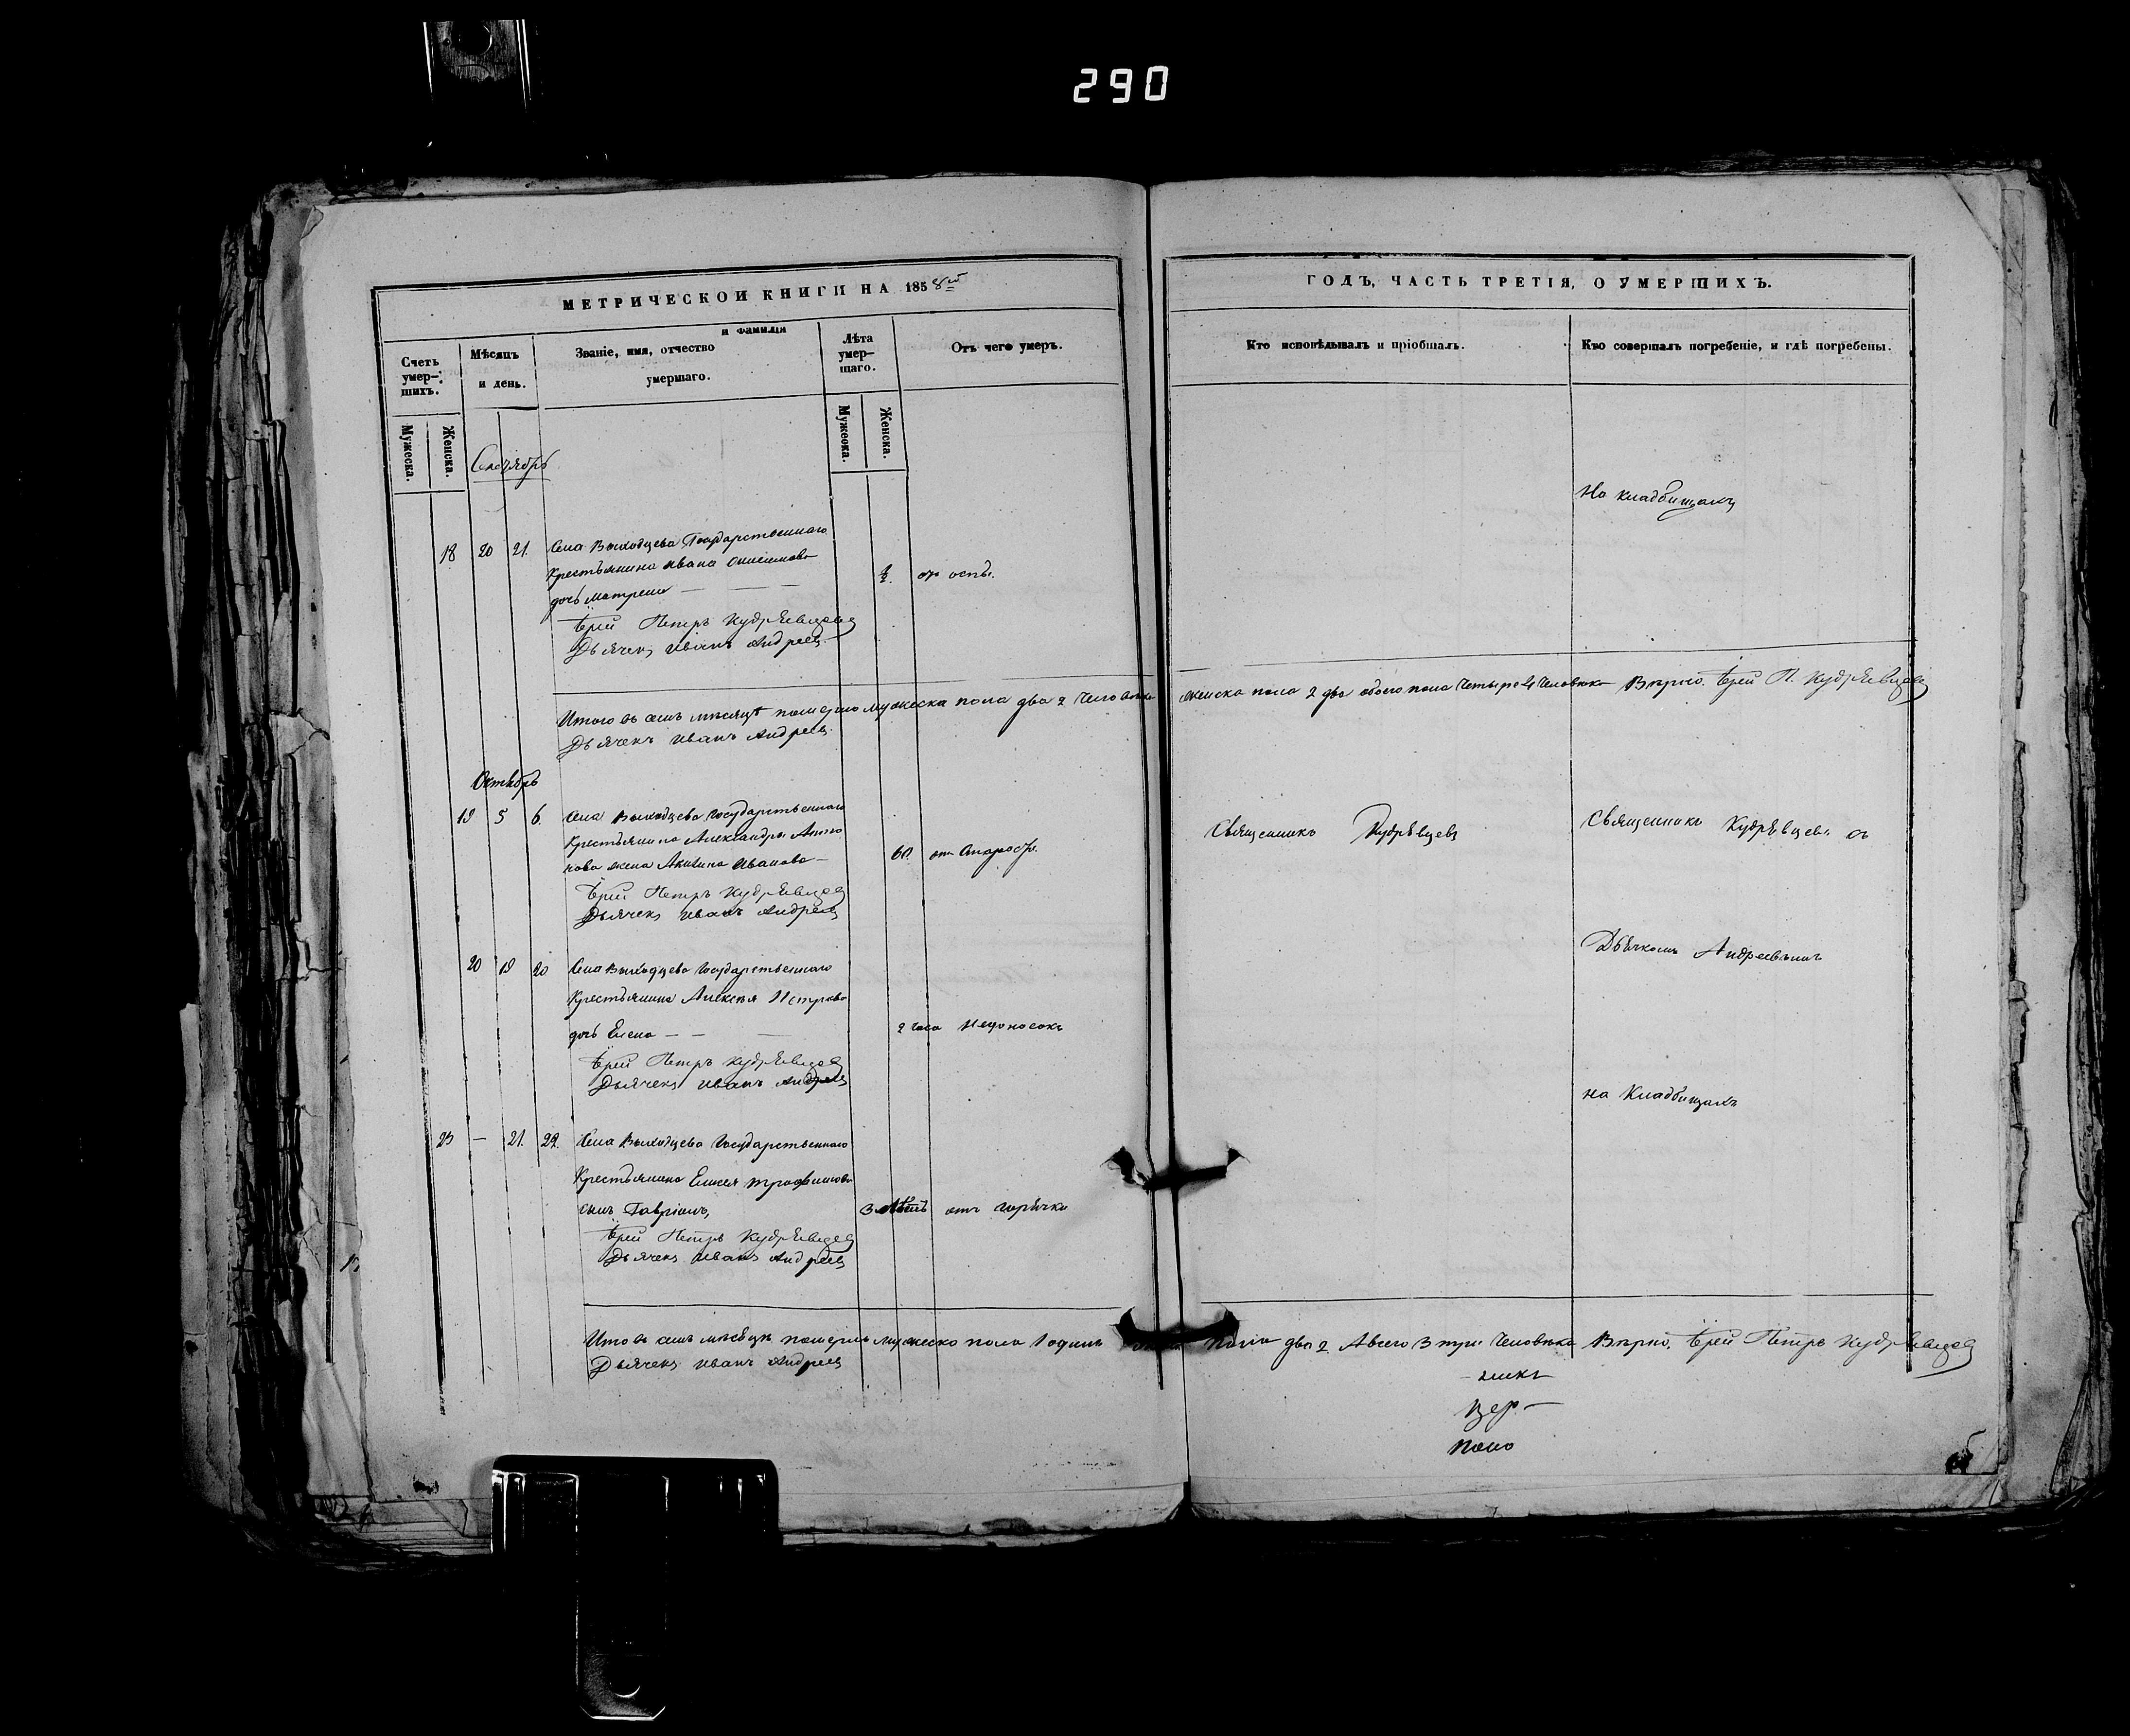 290
МЕТРИЧЕСКОЙ КНИГИ НА 1858й
Счетъ умер-шихъ.
Мѣсяцъ и день.
Званіе, имя, отчество и фамилія умершаго.
Лѣта умер-шаго.
Отъ чего умеръ.
Мужеска.
Женска.
Мужеска.
Женска.
Сентябрь
18 20 21. Села Выходцева Государственнаго
Крестьянина Ивана Онисимова
дочь Матрена ½. отъ оспы.
Іерей Петръ Кудрявцевъ
Дьячекъ Иванъ Андреевъ
Итого въ семъ мѣсяцѣ померло мужеска пола два 2 Человѣка
Дьячекъ Иванъ Андреевъ
Октябрь
19 5 6. Села Выходцева Государственнаго
Крестьянина Александра
жена Акилина Иванова 60. отъ Старости
Іерей Петръ Кудрявцевъ
Дьячекъ Иванъ Андреевъ
20 19 20 Села Выходцева Государственнаго
Крестьянина Алексѣя Петрова
дочь Елена 2 часа Недоносокъ
Іерей Петръ Кудрявцевъ
Дьячекъ Иванъ Андреевъ
23 — 21. 22. Села Выходцева Государственнаго
Крестьянина Елисея Трофимова
сынъ Гавріилъ, 3 лѣтъ отъ горячки
Іерей Петръ Кудрявцевъ
Дьячекъ Иванъ Андреевъ
Итого въ семъ мѣсяцѣ померло мужеско пола 1 одинъ
Дьячекъ Иванъ Андреевъ
ГОДЪ, ЧАСТЬ ТРЕТІЯ, О УМЕРШИХЪ.
Кто исповѣдывалъ и пріобщалъ.
Кто совершалъ погребеніе, и гдѣ погребены.
На кладбищахъ
женска пола 2 два обоего пола Четыре 4 Человѣка Вѣрно. Іерей П. Кудрявцевъ
Священникъ Кудрявцевъ
Священникъ Кудрявцевъ съ
Дьячкомъ Андреевымъ
на Кладбищахъ
пола два 2 А всего 3 три Человѣка Вѣрно. Іерей Петръ Кудрявцевъ